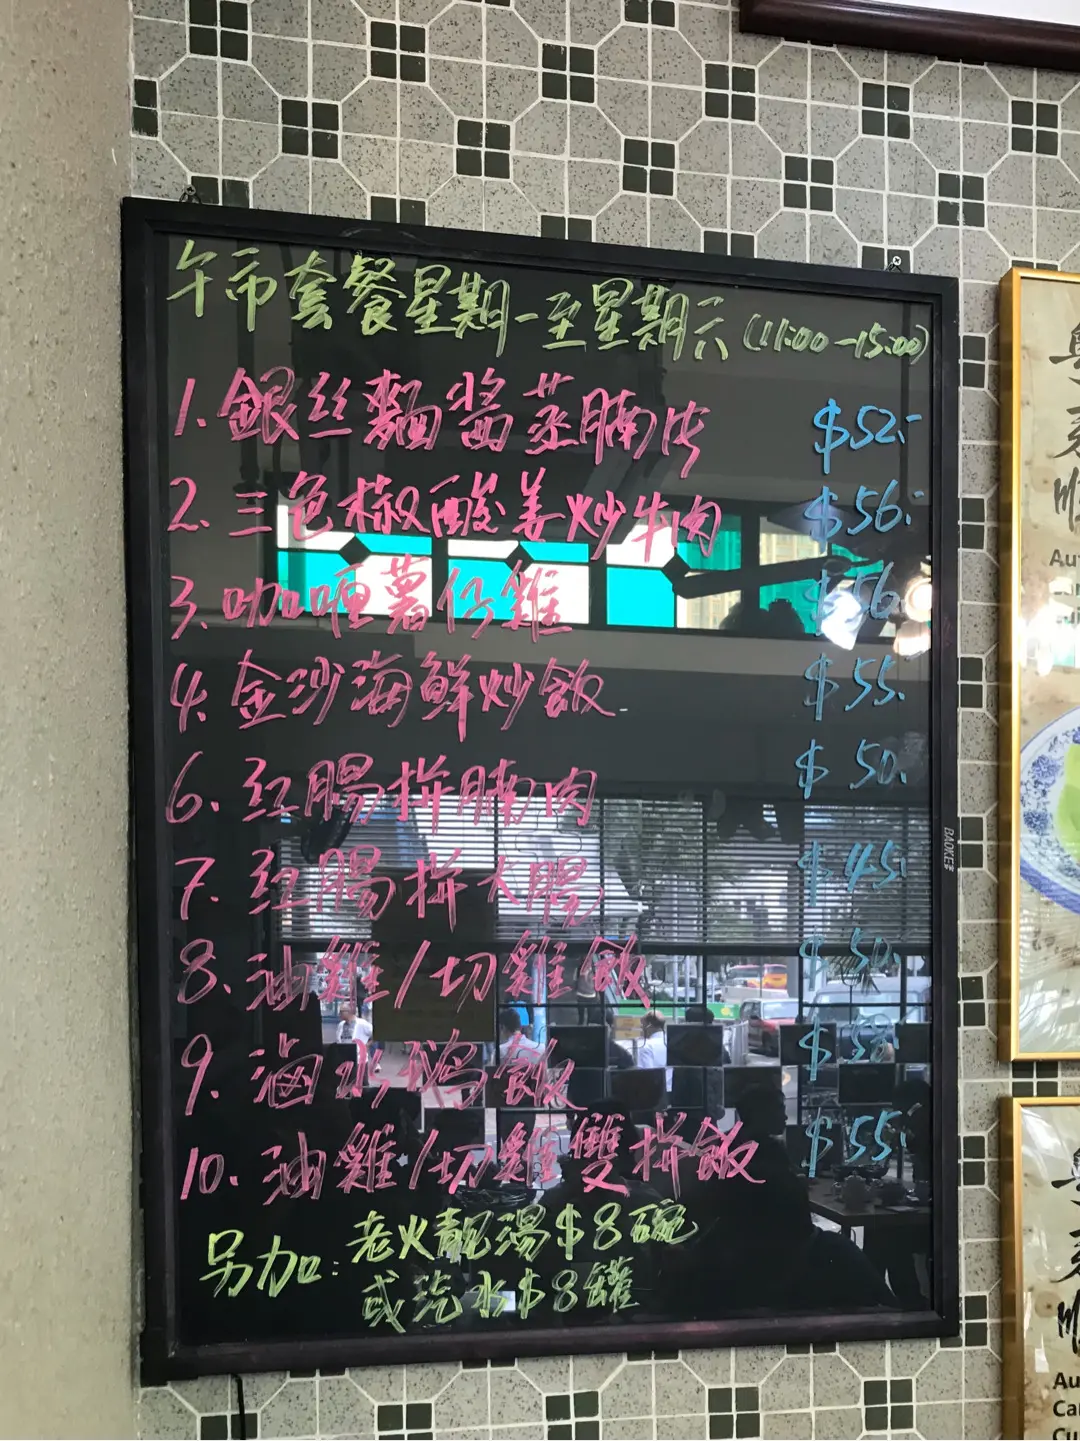 午市套餐星期一至星期六(11:00-15:00)
1. 銀丝麵醬蒸腩片 $52.-
2. 三色椒酸姜炒牛肉 $56.-
3. 咖喱薯仔雞 $56.
4. 金沙海鮮炒飯 $55.
6. 红腸拼腩肉 $50.
7. 红腸拼大腸 $45.
8. 油雞/切雞飯 $50.
9. 滷水鵝飯 $58
10. 油雞/切雞雙拼飯 $55.
另加: 老火靚湯$8碗
或汽水$8罐
BAOKE
粤
Au
Au
Ca
Cu